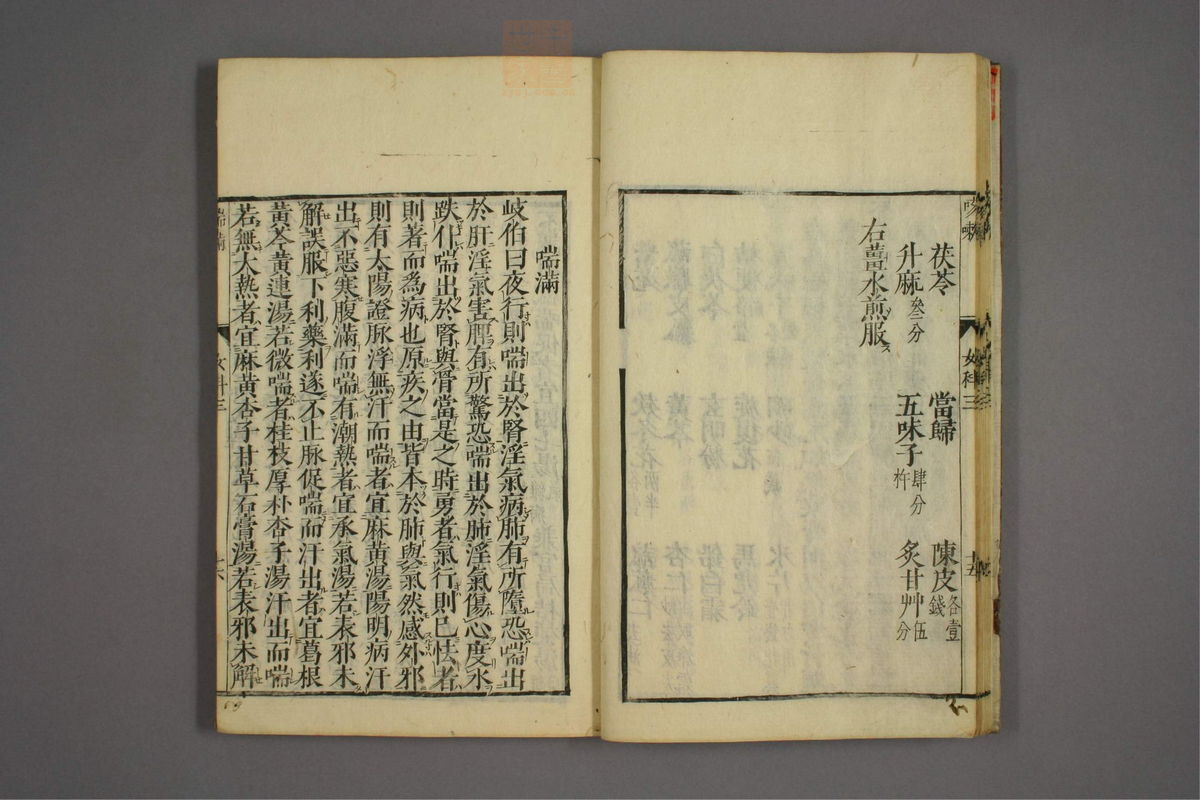 茯苓 當歸 陳皮各壹錢
升麻叄分 五味子肆分杵 炙甘艸伍分
右薑水煎服
喘滿
岐伯曰夜行則喘出於腎淫氣病肺有所墮恐喘出
於肝淫氣害脾有所驚恐喘出於肺淫氣傷心度水
跌仆喘出於腎與骨當是之時勇者氣行則已怯者
則著而爲病也原疾之由皆本於肺與氣然感外邪
則有太陽證脉浮無汗而喘者宜麻黃湯陽明病汗
出不惡寒腹滿而喘有潮熱者宜承氣湯若表邪未
解誤服下利藥利遂不止脉促喘而汗出者宜葛根
黃芩黃連湯若微喘者桂枝厚朴杏子湯汗出而喘
若無大熱者宜麻黃杏子甘草石膏湯若表邪未解
喘滿
女科三
十六
女科三
十五